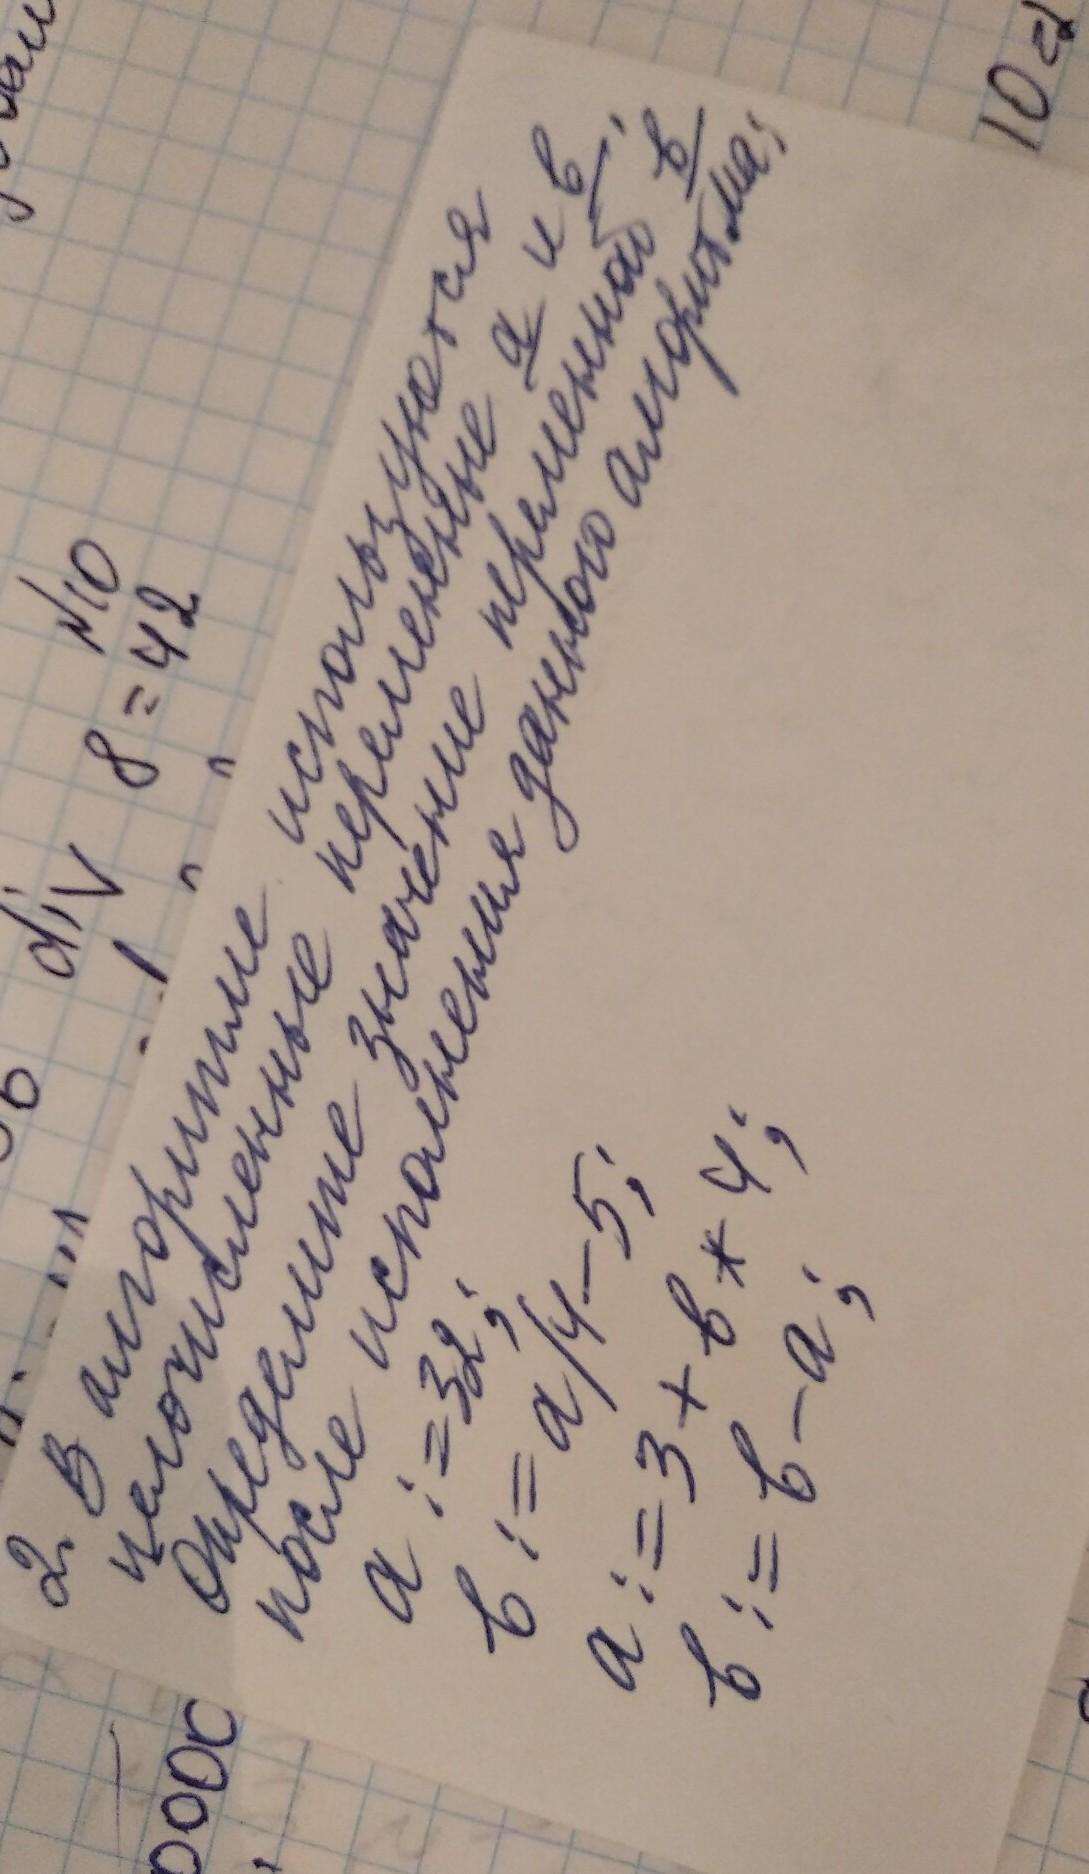 div 8 = 42
№10
10
2. В алгоритме используются
целочисленные переменные a и b.
Определите значение переменной b
после исполнения данного алгоритма:
a := 32;
b := a/4-5;
a := 3 + b * 4;
b := b - a;